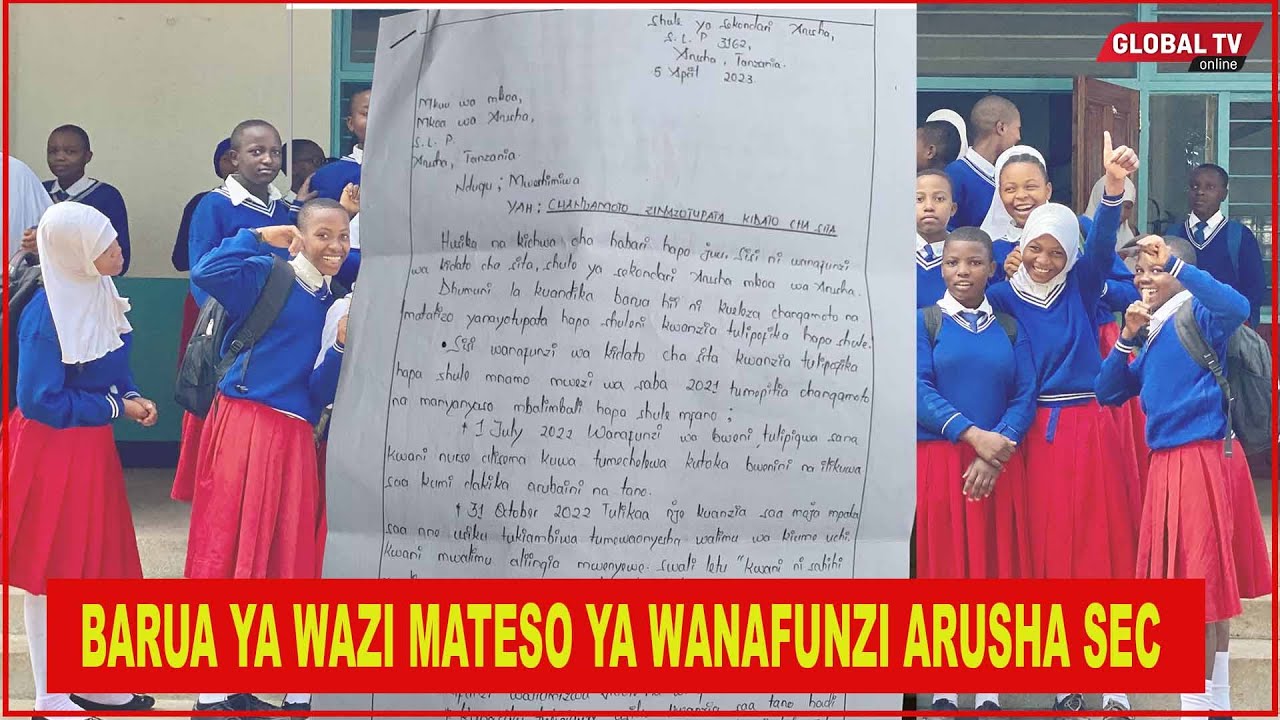 GLOBAL TV
online
Shule ya sekondari Arusha,
S. L. P 3162,
Arusha, Tanzania.
5 April 2023.
Mkuu wa mkoa,
Mkoa wa Arusha,
S. L. P.
Arusha, Tanzania.
Ndugu ; Mweshimiwa
YAH : CHANGAMOTO ZINAZOTUPATA KIDATO CHA SITA
Husika na kichwa cha habari hapo juu, Sisi ni wanafunzi
wa kidato cha sita, shule ya sekondari Arusha mkoa wa Arusha.
Dhumuni la kuandika barua hii ni kueleza changamoto na
matatizo yanayotupata hapa shuleni kwanzia tulipofika hapa shule.
• Sisi wanafunzi wa kidato cha sita kwanzia tulipofika
hapa shule mnamo mwezi wa saba 2021 tumepitia changamoto
na manyanyaso mbalimbali hapa shule mfano ;
+ 1 July 2022 Wanafunzi wa bweni, tulipigwa sana
kwani nurse alisema kuwa tumechelewa kutoka bwenini na ilikuwa
saa kumi dakika arubaini na tano.
+ 31 October 2022 Tulikaa nje kuanzia saa moja mpaka
saa ano usiku tukiambiwa tumewaonyesha walimu wa kiume uchi.
kwani mwalimu aliingia mwenyewe. swali letu "kwani ni sahihi
BARUA YA WAZI MATESO YA WANAFUNZI ARUSHA SEC
saa tano hadi